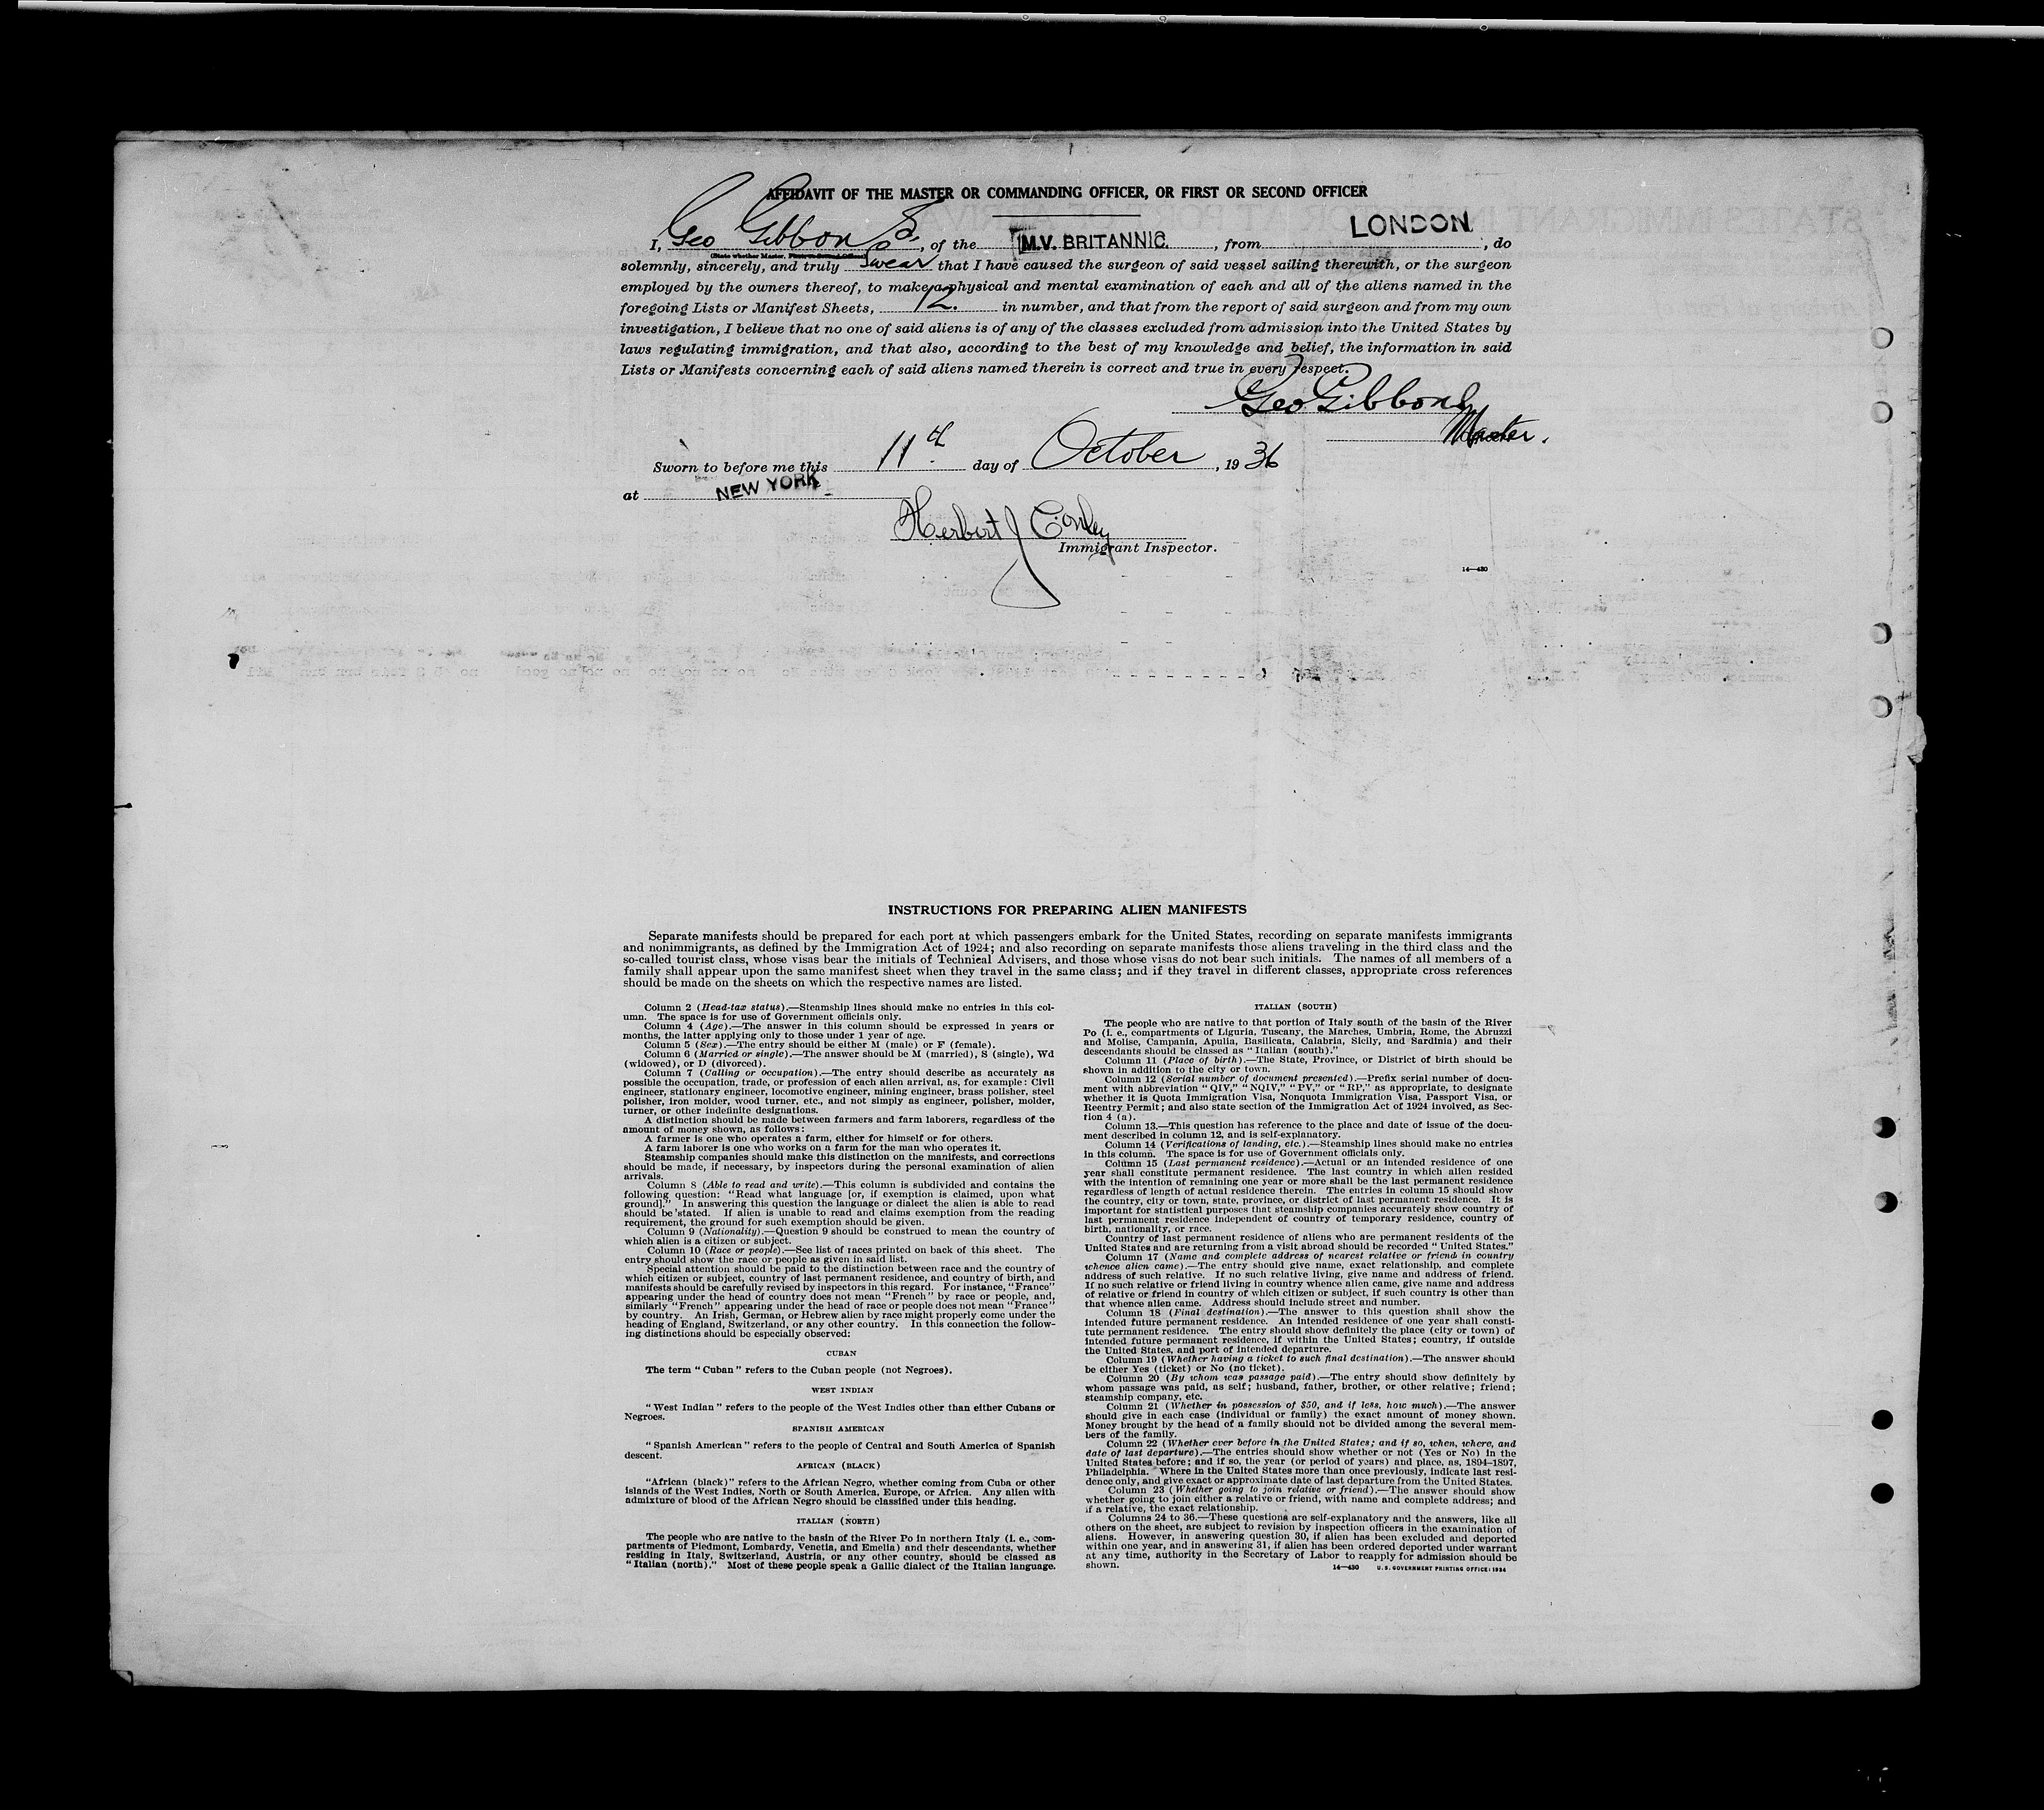 AFFIDAVIT OF THE MASTER OR COMMANDING OFFICER, OR FIRST OR SECOND OFFICER
I, Geo Gibbons, of the M.V. BRITANNIC. , from LONDON , do
(State whether Master, First or Second Officer)
solemnly, sincerely, and truly swear that I have caused the surgeon of said vessel sailing therewith, or the surgeon
employed by the owners thereof, to make a physical and mental examination of each and all of the aliens named in the
foregoing Lists or Manifest Sheets, 12. in number, and that from the report of said surgeon and from my own
investigation, I believe that no one of said aliens is of any of the classes excluded from admission into the United States by
laws regulating immigration, and that also, according to the best of my knowledge and belief, the information in said
Lists or Manifests concerning each of said aliens named therein is correct and true in every respect.
Geo Gibbons
Master.
Sworn to before me this 11th day of October , 1936
at NEW YORK
Herbert J Conley
Immigrant Inspector.
14—430
INSTRUCTIONS FOR PREPARING ALIEN MANIFESTS
Separate manifests should be prepared for each port at which passengers embark for the United States, recording on separate manifests immigrants
and nonimmigrants, as defined by the Immigration Act of 1924; and also recording on separate manifests those aliens traveling in the third class and the
so-called tourist class, whose visas bear the initials of Technical Advisers, and those whose visas do not bear such initials. The names of all members of a
family shall appear upon the same manifest sheet when they travel in the same class; and if they travel in different classes, appropriate cross references
should be made on the sheets on which the respective names are listed.
Column 2 (Head-tax status).—Steamship lines should make no entries in this col-
umn. The space is for use of Government officials only.
Column 4 (Age).—The answer in this column should be expressed in years or
months, the latter applying only to those under 1 year of age.
Column 5 (Sex).—The entry should be either M (male) or F (female).
Column 6 (Married or single).—The answer should be M (married), S (single), Wd
(widowed), or D (divorced).
Column 7 (Calling or occupation).—The entry should describe as accurately as
possible the occupation, trade, or profession of each alien arrival, as, for example: Civil
engineer, stationary engineer, locomotive engineer, mining engineer, brass polisher, steel
polisher, iron molder, wood turner, etc., and not simply as engineer, polisher, molder,
turner, or other indefinite designations.
A distinction should be made between farmers and farm laborers, regardless of the
amount of money shown, as follows:
A farmer is one who operates a farm, either for himself or for others.
A farm laborer is one who works on a farm for the man who operates it.
Steamship companies should make this distinction on the manifests, and corrections
should be made, if necessary, by inspectors during the personal examination of alien
arrivals.
Column 8 (Able to read and write).—This column is subdivided and contains the
following question: "Read what language [or, if exemption is claimed, upon what
ground]." In answering this question the language or dialect the alien is able to read
should be stated. If alien is unable to read and claims exemption from the reading
requirement, the ground for such exemption should be given.
Column 9 (Nationality).—Question 9 should be construed to mean the country of
which alien is a citizen or subject.
Column 10 (Race or people).—See list of races printed on back of this sheet. The
entry should show the race or people as given in said list.
Special attention should be paid to the distinction between race and the country of
which citizen or subject, country of last permanent residence, and country of birth, and
manifests should be carefully revised by inspectors in this regard. For instance, "France"
appearing under the head of country does not mean "French" by race or people, and,
similarly "French" appearing under the head of race or people does not mean "France"
by country. An Irish, German, or Hebrew alien by race might properly come under the
heading of England, Switzerland, or any other country. In this connection the follow-
ing distinctions should be especially observed:
CUBAN
The term "Cuban" refers to the Cuban people (not Negroes).
WEST INDIAN
"West Indian" refers to the people of the West Indies other than either Cubans or
Negroes.
SPANISH AMERICAN
"Spanish American" refers to the people of Central and South America of Spanish
descent.
AFRICAN (BLACK)
"African (black)" refers to the African Negro, whether coming from Cuba or other
islands of the West Indies, North or South America, Europe, or Africa. Any alien with
admixture of blood of the African Negro should be classified under this heading.
ITALIAN (NORTH)
The people who are native to the basin of the River Po in northern Italy (i. e., com-
partments of Piedmont, Lombardy, Venetia, and Emelia) and their descendants, whether
residing in Italy, Switzerland, Austria, or any other country, should be classed as
"Italian (north)." Most of these people speak a Gallic dialect of the Italian language.
ITALIAN (SOUTH)
The people who are native to that portion of Italy south of the basin of the River
Po (i. e., compartments of Liguria, Tuscany, the Marches, Umbria, Rome, the Abruzzi
and Molise, Campania, Apulia, Basilicata, Calabria, Sicily, and Sardinia) and their
descendants should be classed as "Italian (south)."
Column 11 (Place of birth).—The State, Province, or District of birth should be
shown in addition to the city or town.
Column 12 (Serial number of document presented).—Prefix serial number of docu-
ment with abbreviation "QIV," "NQIV," "PV," or "RP," as appropriate, to designate
whether it is Quota Immigration Visa, Nonquota Immigration Visa, Passport Visa, or
Reentry Permit; and also state section of the Immigration Act of 1924 involved, as Sec-
tion 4 (a).
Column 13.—This question has reference to the place and date of issue of the docu-
ment described in column 12, and is self-explanatory.
Column 14 (Verifications of landing, etc.).—Steamship lines should make no entries
in this column. The space is for use of Government officials only.
Column 15 (Last permanent residence).—Actual or an intended residence of one
year shall constitute permanent residence. The last country in which alien resided
with the intention of remaining one year or more shall be the last permanent residence
regardless of length of actual residence therein. The entries in column 15 should show
the country, city or town, state, province, or district of last permanent residence. It is
important for statistical purposes that steamship companies accurately show country of
last permanent residence independent of country of temporary residence, country of
birth, nationality, or race.
Country of last permanent residence of aliens who are permanent residents of the
United States and are returning from a visit abroad should be recorded "United States."
Column 17 (Name and complete address of nearest relative or friend in country
whence alien came).—The entry should give name, exact relationship, and complete
address of such relative. If no such relative living, give name and address of friend.
If no such relative or friend living in country whence alien came, give name and address
of relative or friend in country of which citizen or subject, if such country is other than
that whence alien came. Address should include street and number.
Column 18 (Final destination).—The answer to this question shall show the
intended future permanent residence. An intended residence of one year shall consti-
tute permanent residence. The entry should show definitely the place (city or town) of
intended future permanent residence, if within the United States; country, if outside
the United States, and port of intended departure.
Column 19 (Whether having a ticket to such final destination).—The answer should
be either Yes (ticket) or No (no ticket).
Column 20 (By whom was passage paid).—The entry should show definitely by
whom passage was paid, as self; husband, father, brother, or other relative; friend;
steamship company, etc.
Column 21 (Whether in possession of $50, and if less, how much).—The answer
should give in each case (individual or family) the exact amount of money shown.
Money brought by the head of a family should not be divided among the several mem-
bers of the family.
Column 22 (Whether ever before in the United States; and if so, when, where, and
date of last departure).—The entries should show whether or not (Yes or No) in the
United States before; and if so, the year (or period of years) and place, as, 1894–1897,
Philadelphia. Where in the United States more than once previously, indicate last resi-
dence only, and give exact or approximate date of last departure from the United States.
Column 23 (Whether going to join relative or friend).—The answer should show
whether going to join either a relative or friend, with name and complete address; and
if a relative, the exact relationship.
Columns 24 to 36.—These questions are self-explanatory and the answers, like all
others on the sheet, are subject to revision by inspection officers in the examination of
aliens. However, in answering question 30, if alien has been excluded and deported
within one year, and in answering 31, if alien has been ordered deported under warrant
at any time, authority in the Secretary of Labor to reapply for admission should be
shown.
14—430 U. S. GOVERNMENT PRINTING OFFICE: 1934